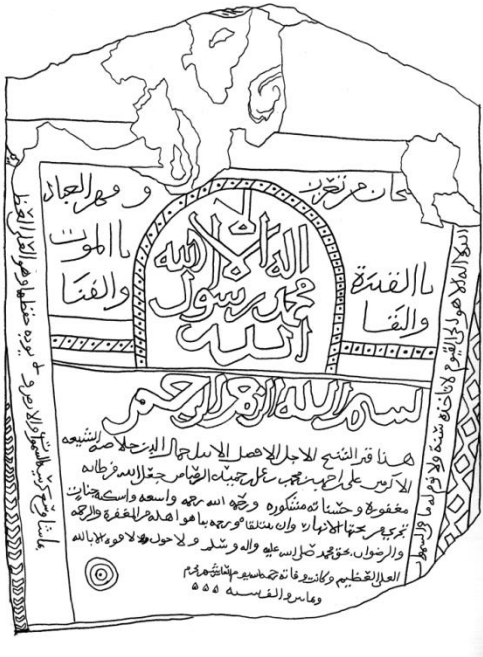 حان من تعزز
بالقدرة
والبقا
وقهر العباد
بالموت
والفنا
لا
اله الا الله
محمد رسول
الله
بسم الله الرحمن الرحيم
هذا قبر الشيخ الاجل الافضل الاكمل جمال الدين خلاصة الشيعه
الاكرمين علي احمد بن محمد علي جعل الله فرطاته
مغفورة وحسناته مشكورة ورحمه الله رحمه واسعه واسكنه جنات
تجري من تحتها الانهار وان يتلقا روحه بما هو اهله من المغفرة والرحمه
والرضوان بحق محمد صلى الله عليه واله وسلم ولا حول ولا قوة الا بالله
العلي العظيم وكانت وفاته يوم شهر محرم
والف سنه
الله لا اله الا هو الحي القيوم لا تاخذه سنة ولا نوم له ما في السموات
بما شا وسع كرسيه السموات والارض ولا يوده حفظهما وهو العلي العظيم